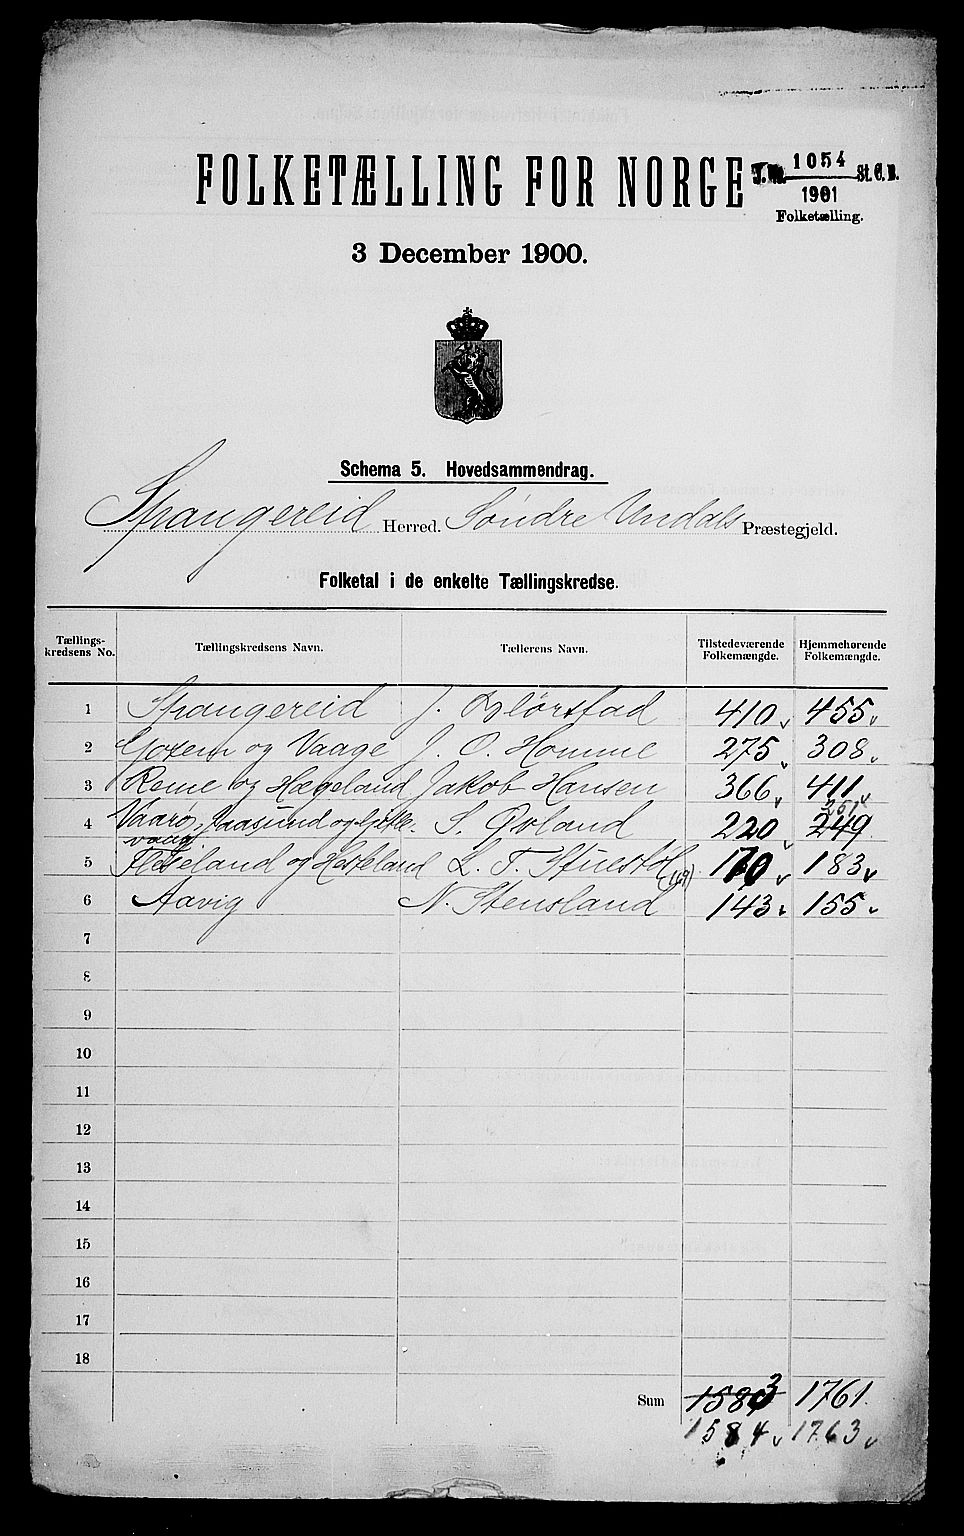 FOLKETÆLLING FOR NORGE
J.No. 1054 St.C.B.
1901
Folketælling.
3 December 1900.
Schema 5. Hovedsammendrag.
Spangereid Herred. Søndre Undals Præstegjeld.
Folketal i de enkelte Tællingskredse.
Tællings-kredsens No. Tællingskredsens Navn. Tællerens Navn. Tilstedeværende Folkemængde. Hjemmehørende Folkemængde.
1 Spangereid J. 410 455
2 og Vaage J. O. Homme 275 308
3 Reme og Hægeland Jakob Hansen 366 411
251
4 Vaarø, S. Øvland 220 249
vaag
5 og Hesteland L. T. 170 183
(169)
6 Aavig N. Stensland 143 155
7
8
9
10
11
12
13
14
15
16
17
18
Sum 1583 1761.
1584 1763